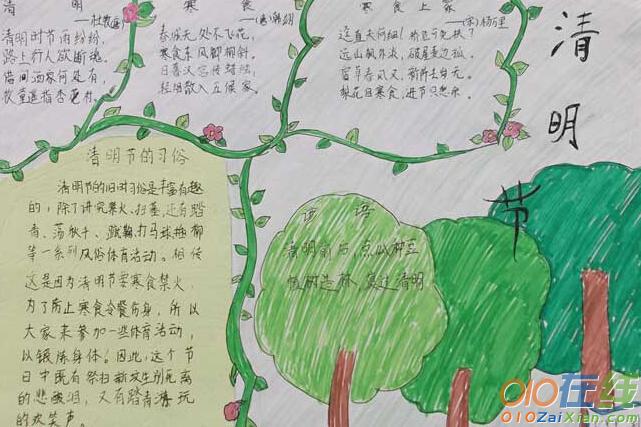 清 明
—杜牧(唐)
清明时节雨纷纷,
路上行人欲断魂。
借问酒家何处有,
牧童遥指杏花村。
寒 食
(唐)韩翃
春城无处不飞花,
寒食东风御柳斜。
日暮汉宫传蜡烛,
轻烟散入五侯家。
寒食上冢
—(宋)杨万里
迳直夫何细!桥危可免扶?
远山枫外淡,破屋麦边孤。
宿草春风又,新阡去岁无。
梨花自寒食,进节只愁余。
清
明
节
清明节的习俗
清明节的旧时习俗是丰富有趣
的,除了讲究禁火、扫墓,还有踏
青、荡秋千、蹴鞠打马球插柳
等一系列风俗体育活动。相传
这是因为清明节要寒食禁火,
为了防止寒食冷餐伤身,所以
大家来参加一些体育活动,
以锻炼身体。因此,这个节
日中既有祭扫新坟生别死离
的悲酸泪,又有踏青游玩
的欢笑声。
谚 语
清明前后,点瓜种豆
植树造林,莫过清明
010在线
010ZaiXian.com